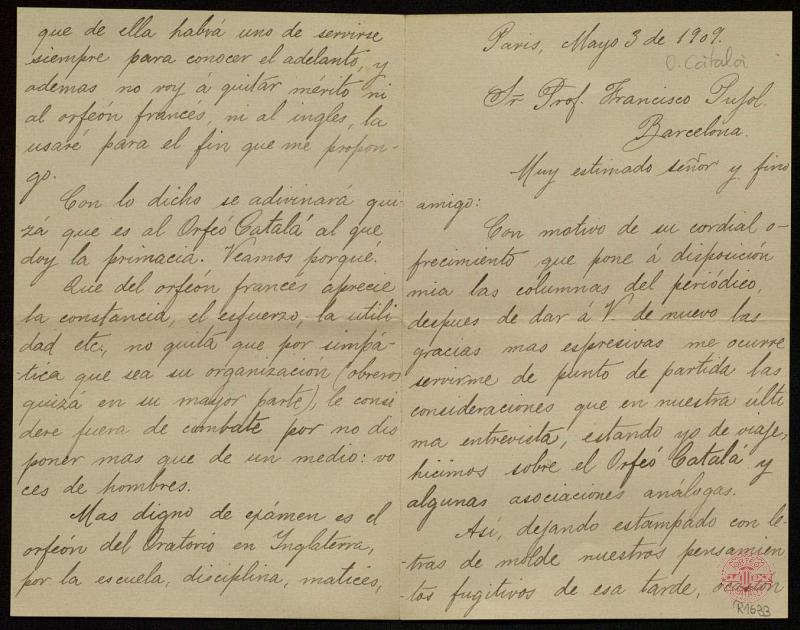 Paris, Mayo 3 de 1909.
O. Català
Sr. Prof. Francisco Pujol.
Barcelona.
Muy estimado señor y fino
amigo:
Con motivo de su cordial o-
frecimiento que pone á disposición
mia las columnas del periódico,
despues de dar á V. de nuevo las
gracias mas espresivas me ocurre
servirme de punto de partida las
consideraciones que en nuestra últi
ma entrevista, estando yo de viaje,
hicimos sobre el Orfeó Catalá y
algunas asociaciones análogas.
Así, dejando estampado con le-
tras de molde nuestros pensamien
-tos fugitivos de esa tarde, ocasión
R1633
que de ella habrá uno de servirse
siempre para conocer el adelanto, y
ademas no voy á quitar mérito ni
al orfeón francés, ni al ingles, la
usaré para el fin que me propon-
go.
Con lo dicho se adivinará qui-
zá que es al Orfeó Catalá al que
doy la primacia. Veamos porqué.
Que del orfeón francés aprecie
la constancia, el esfuerzo, la utili
dad etc., no quita que por simpá-
-tica que sea su organización (obreros
quizá en su mayor parte), le consi
dere fuera de combate por no dis
poner mas que de un medio: vo
ces de hombres.
Mas digno de exámen es el
orfeón del Oratorio en Inglaterra,
por la escuela, disciplina, matices,